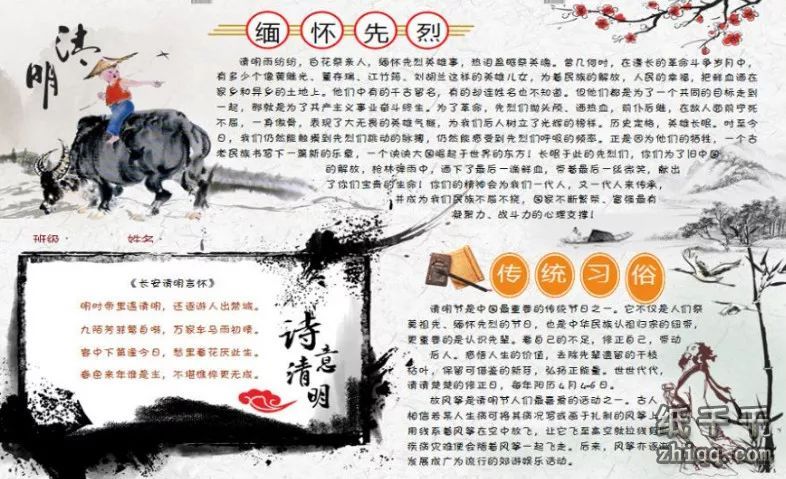 清明
缅怀先烈
清明雨纷纷，白花祭亲人，缅怀先烈英雄事，热泪盈眶祭英魂。曾几何时，在漫长的革命斗争岁月中，
有多少个像黄继光、董存瑞、江竹筠、刘胡兰这样的英雄儿女，为着民族的解放，人民的幸福，把鲜血洒在
家乡和异乡的土地上。他们中有的千古留名，有的却连姓名也不知道。但他们都是为了一个共同的目标走到
一起，那就是为了共产主义事业奋斗终生。为了革命，先烈们抛头颅、洒热血，前仆后继，在敌人面前宁死
不屈，一身傲骨，表现了大无畏的英雄气概，为我们后人树立了光辉的榜样。历史定格，英雄长眠。时至今
日，我们仍然能触摸到先烈们跳动的脉搏，仍然能感受到先烈们呼吸的频率。正是因为他们的牺牲，一个古
老民族书写下一篇新的乐章，一个泱泱大国崛起于世界的东方！长眠于此的先烈们，你们为了旧中国
的解放，枪林弹雨中，洒下了最后一滴鲜血，带着最后一丝微笑，献出
了你们宝贵的生命！你们的精神会为我们一代人，又一代人来传承，
并成为我们民族不屈不挠，国家不断繁荣、富强最有
凝聚力、战斗力的心理支撑！
班级： 姓名
《长安清明言怀》
明时帝里遇清明，还逐游人出禁城。
九陌芳菲莺自啭，万家车马雨初晴。
客中下第逢今日，愁里看花厌此生。
春色来年谁是主，不堪憔悴更无成。
诗意清明
传统习俗
清明节是中国最重要的传统节日之一。它不仅是人们祭
奠祖先、缅怀先烈的节日，也是中华民族认祖归宗的纽带，
更重要的是认识先辈。看自己的不足，修正自己，带动
后人。感悟人生的价值，去除先辈遗留的干枝
枯叶，保留可借鉴的新芽，弘扬正能量。世世代代，
清清楚楚的修正日，每年阳历4月4-6日。
放风筝是清明节人们最喜爱的活动之一。古人
相信若某人生病可将其病况写或画于扎制的风筝上
用线系着风筝在空中放飞，让它飞至高空就拉线
疾病灾难便会随着风筝一起飞走。后来，风筝亦逐渐
发展成广为流行的郊游娱乐活动。
纸千千
zhiqq.com